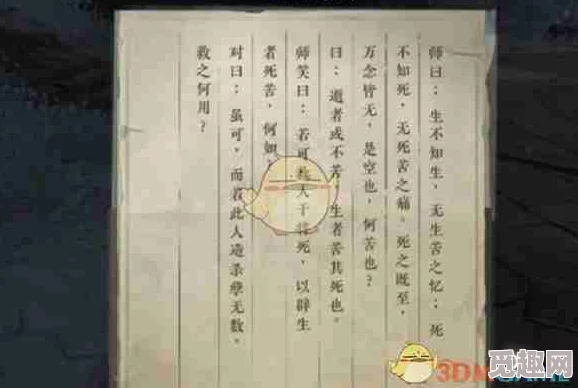 师曰：生不知生，无生苦之忆；死
不知死，无死苦之痛。死之既至，
万念皆无，是空也，何苦也？
曰：逝者或不苦，生者苦其死也。
师笑曰：若可人于将死，以辟生
者死苦，何如？
对曰：虽可，而若此人造杀孽无数。
救之何用？
3DM
觅趣网